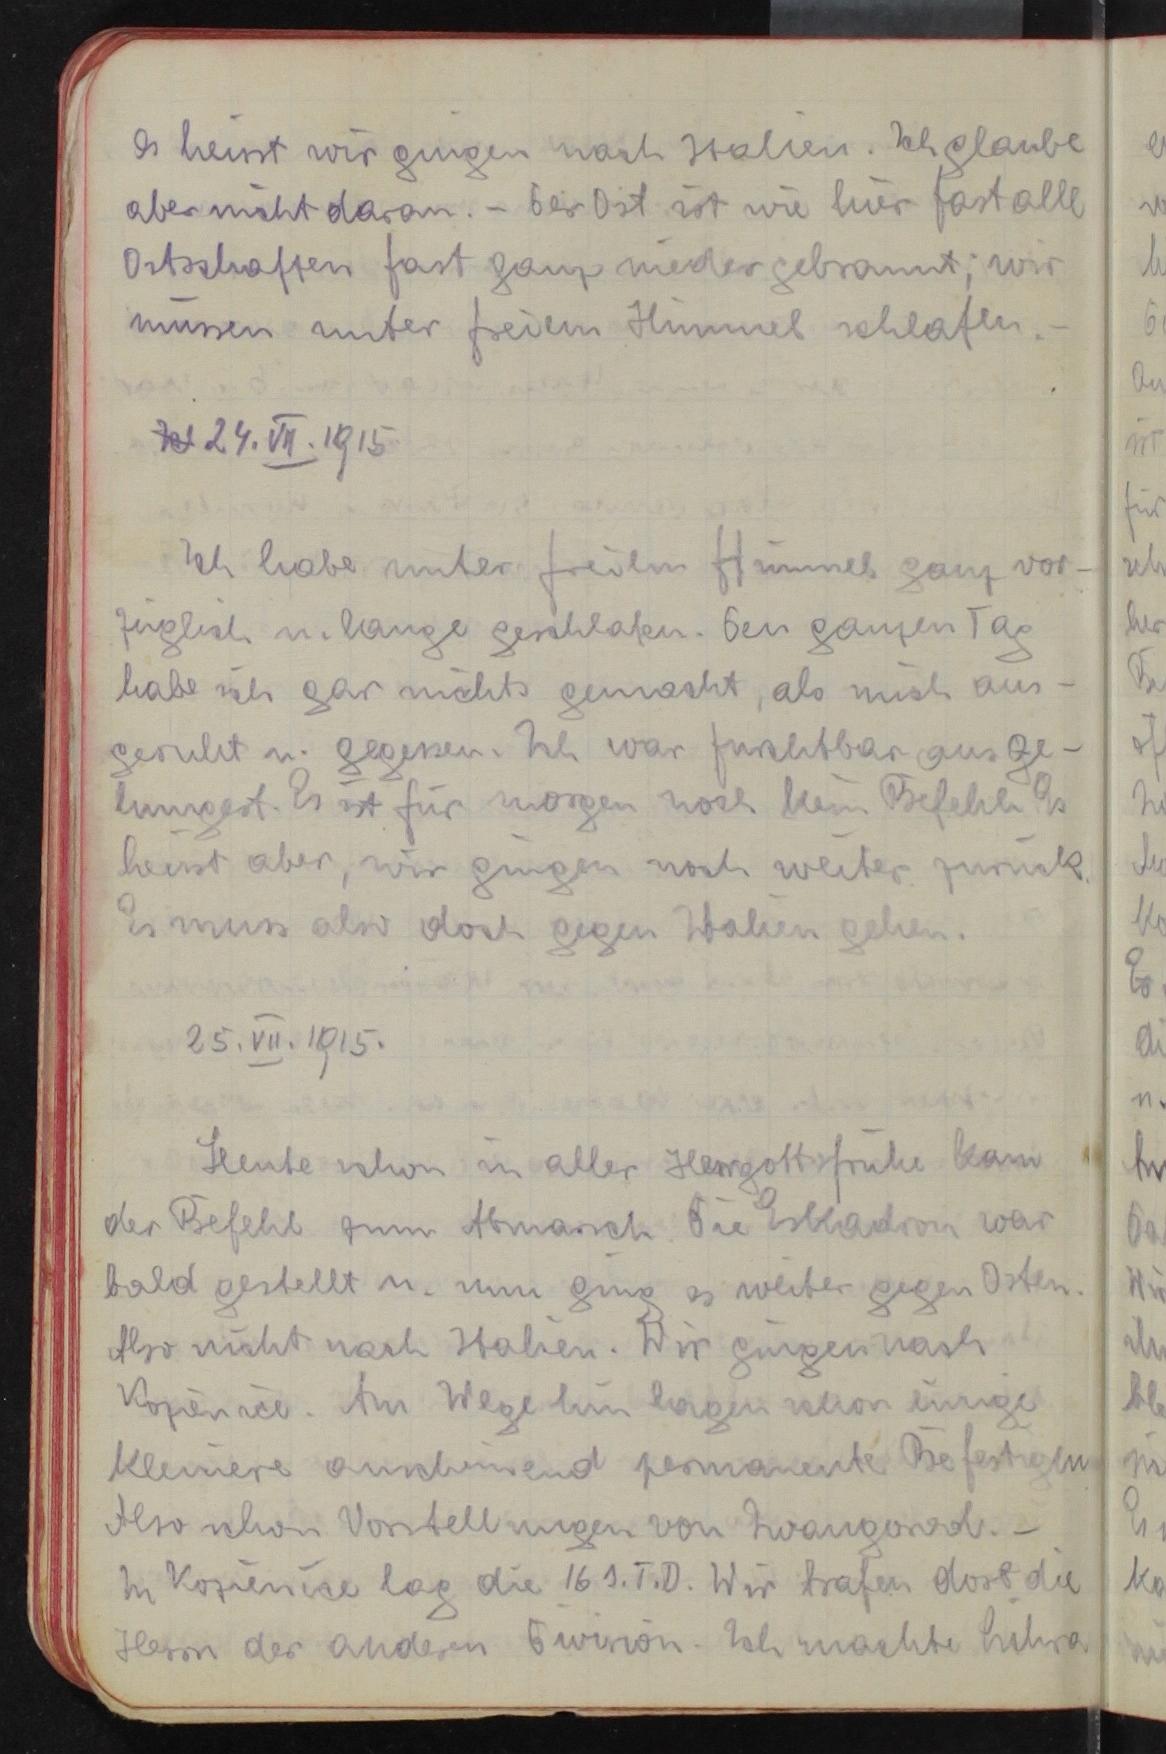 Es heisst wir gingen nach Italien. Ich glaube
aber nicht daran. - Der Ort ist wie hier fast alle
Ortschaften fast ganz niedergebrannt; wir
müssen unter freiem Himmel schlafen. -
24. VII. 1915
Ich habe unter freiem Himmel ganz vor-
züglich u. lange geschlafen. Den ganzen Tag
habe ich gar nichts gemacht, als mich aus-
geruht u. gegessen. Ich war furchtbar ausge-
hungert. Es ist für morgen noch kein Befehl. Es
heisst aber, wir gingen noch weiter zurück.
Es muss also doch gegen Italien gehen.
25. VII. 1915.
Heute schon in aller Herrgottsfrühe kam
der Befehl zum Abmarsch. Die Eskadron war
bald gestellt u. nun ging es weiter gegen Osten.
Also nicht nach Italien. Wir gingen nach
Kozienice. Am Wege hin lagen schon einige
kleinere anscheinend permanente Befestigun
Also schon Vorstellungen von Iwangorod. -
In Kozienice lag die 16 I.T.D. Wir trafen dort die
Herrn der anderen Division. Ich machte